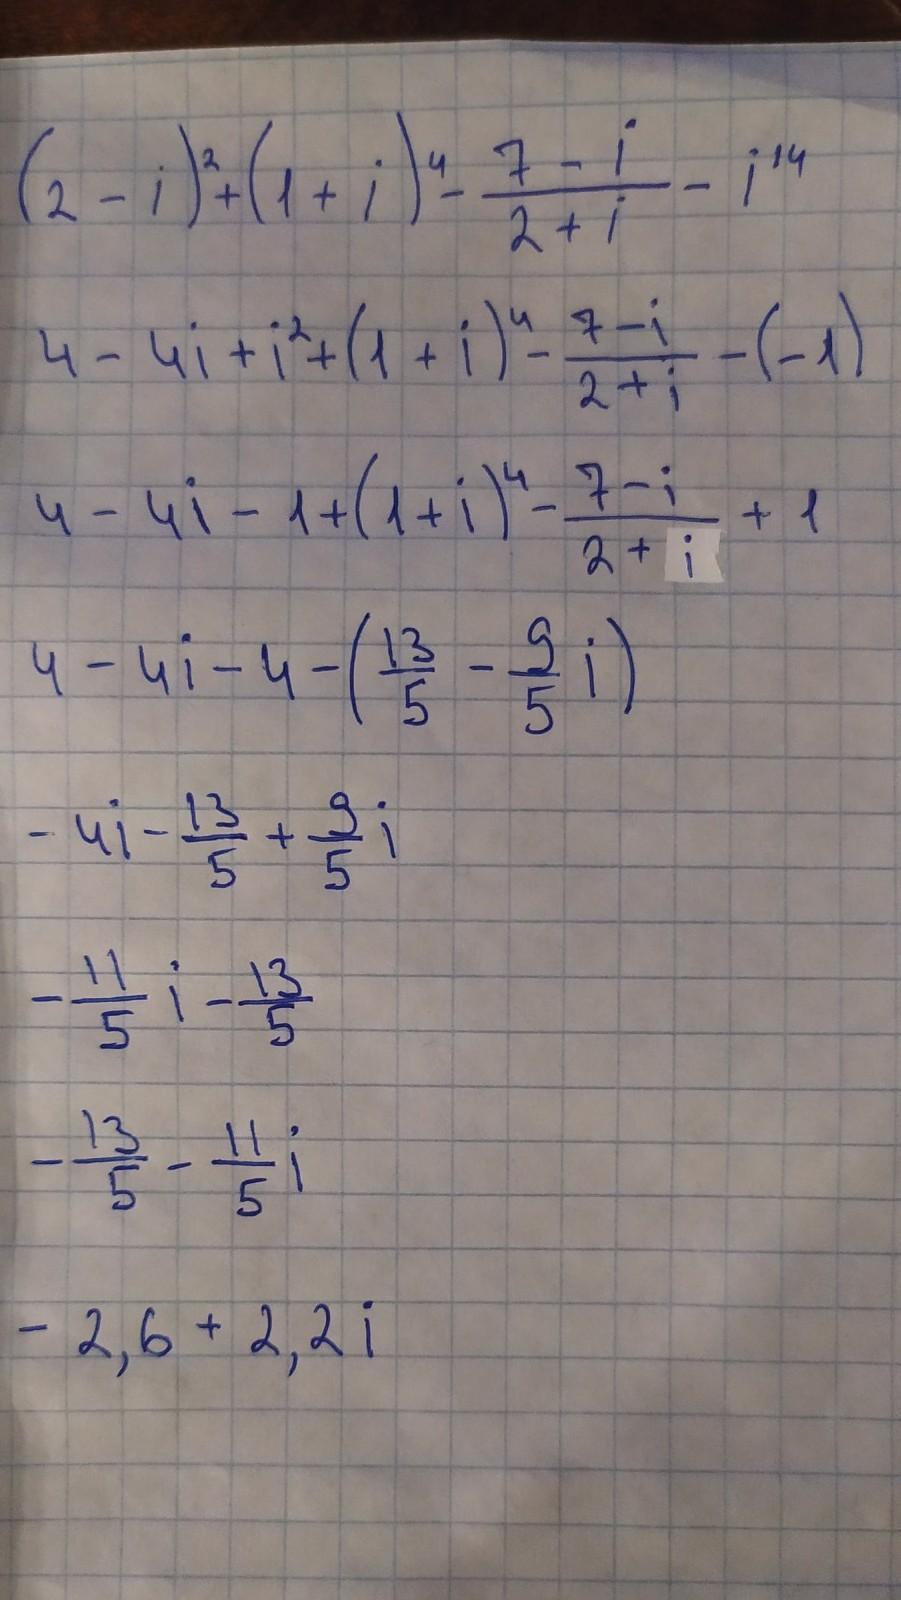 (2 - i)² + (1 + i)⁴ - (7 - i)/(2 + i) - i¹⁴
4 - 4i + i² + (1 + i)⁴ - (7 - i)/(2 + i) - (-1)
4 - 4i - 1 + (1 + i)⁴ - (7 - i)/(2 + i) + 1
4 - 4i - 4 - (13/5 - 9/5 i)
- 4i - 13/5 + 9/5 i
- 11/5 i - 13/5
- 13/5 - 11/5 i
- 2,6 + 2,2i